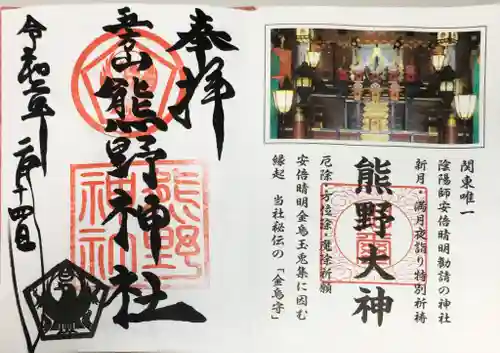 関東唯一
陰陽師安倍晴明勧請の神社
新月・満月夜詣り特別祈祷
熊野大神
厄除・方位除・魔除祈願
安倍晴明金烏玉兎集に因む
縁起　当社秘伝の「金烏守」
奉拝
五方山熊野神社
熊野神社
令和七年二月十四日